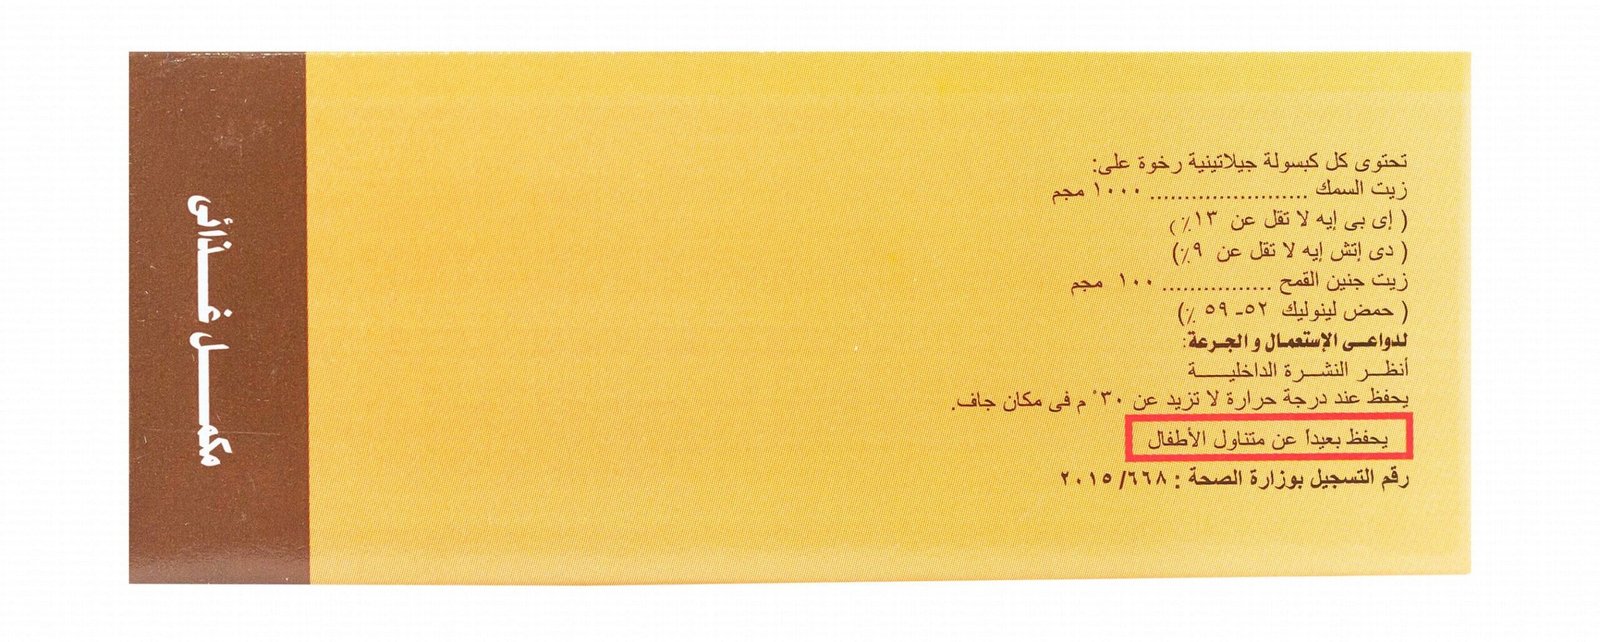 تحتوى كل كبسولة جيلاتينية رخوة على:
زيت السمك ....................... ١٠٠٠ مجم
( إى بى إيه لا تقل عن ١٣٪)
( دى إتش إيه لا تقل عن ٩٪)
زيت جنين القمح ................ ١٠٠ مجم
( حمض لينوليك ٥٢- ٥٩ ٪)
لدواعـى الإستعمـال و الجـرعة:
أنظـر النشـرة الداخليـــة
يحفظ عند درجة حرارة لا تزيد عن ٣٠° م فى مكان جاف.
يحفظ بعيداً عن متناول الأطفال
رقم التسجيل بوزارة الصحة : ٦٦٨/ ٢٠١٥
مكمـــل غـــذائى